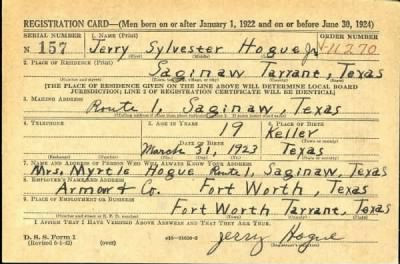 REGISTRATION CARD—(Men born on or after January 1, 1922 and on or before June 30, 1924)
SERIAL NUMBER 1. NAME (Print) ORDER NUMBER
N 157 Jerry Sylvester Hogue Jr 11270
(First) (Middle) (Last)
2. PLACE OF RESIDENCE (Print)
Saginaw Tarrant, Texas
(Number and street) (Town, township, village, or city) (County) (State)
[THE PLACE OF RESIDENCE GIVEN ON THE LINE ABOVE WILL DETERMINE LOCAL BOARD
JURISDICTION; LINE 2 OF REGISTRATION CERTIFICATE WILL BE IDENTICAL]
3. MAILING ADDRESS
Route 1, Saginaw, Texas
4. TELEPHONE 5. AGE IN YEARS 6. PLACE OF BIRTH
19 Keller
DATE OF BIRTH
March 31, 1923 Texas
(Exchange) (Number) (Mo.) (Day) (Yr.) (State or country)
7. NAME AND ADDRESS OF PERSON WHO WILL ALWAYS KNOW YOUR ADDRESS
Mrs. Myrtle Hogue Route 1, Saginaw, Texas
8. EMPLOYER'S NAME AND ADDRESS
Armour & Co. Fort Worth, Texas
9. PLACE OF EMPLOYMENT OR BUSINESS
Fort Worth Tarrant, Texas
(Number and street or R. F. D. number) (Town) (County) (State)
I AFFIRM THAT I HAVE VERIFIED ABOVE ANSWERS AND THAT THEY ARE TRUE.
D. S. S. Form 1
(Revised 6-1-42) (over) Jerry Hogue